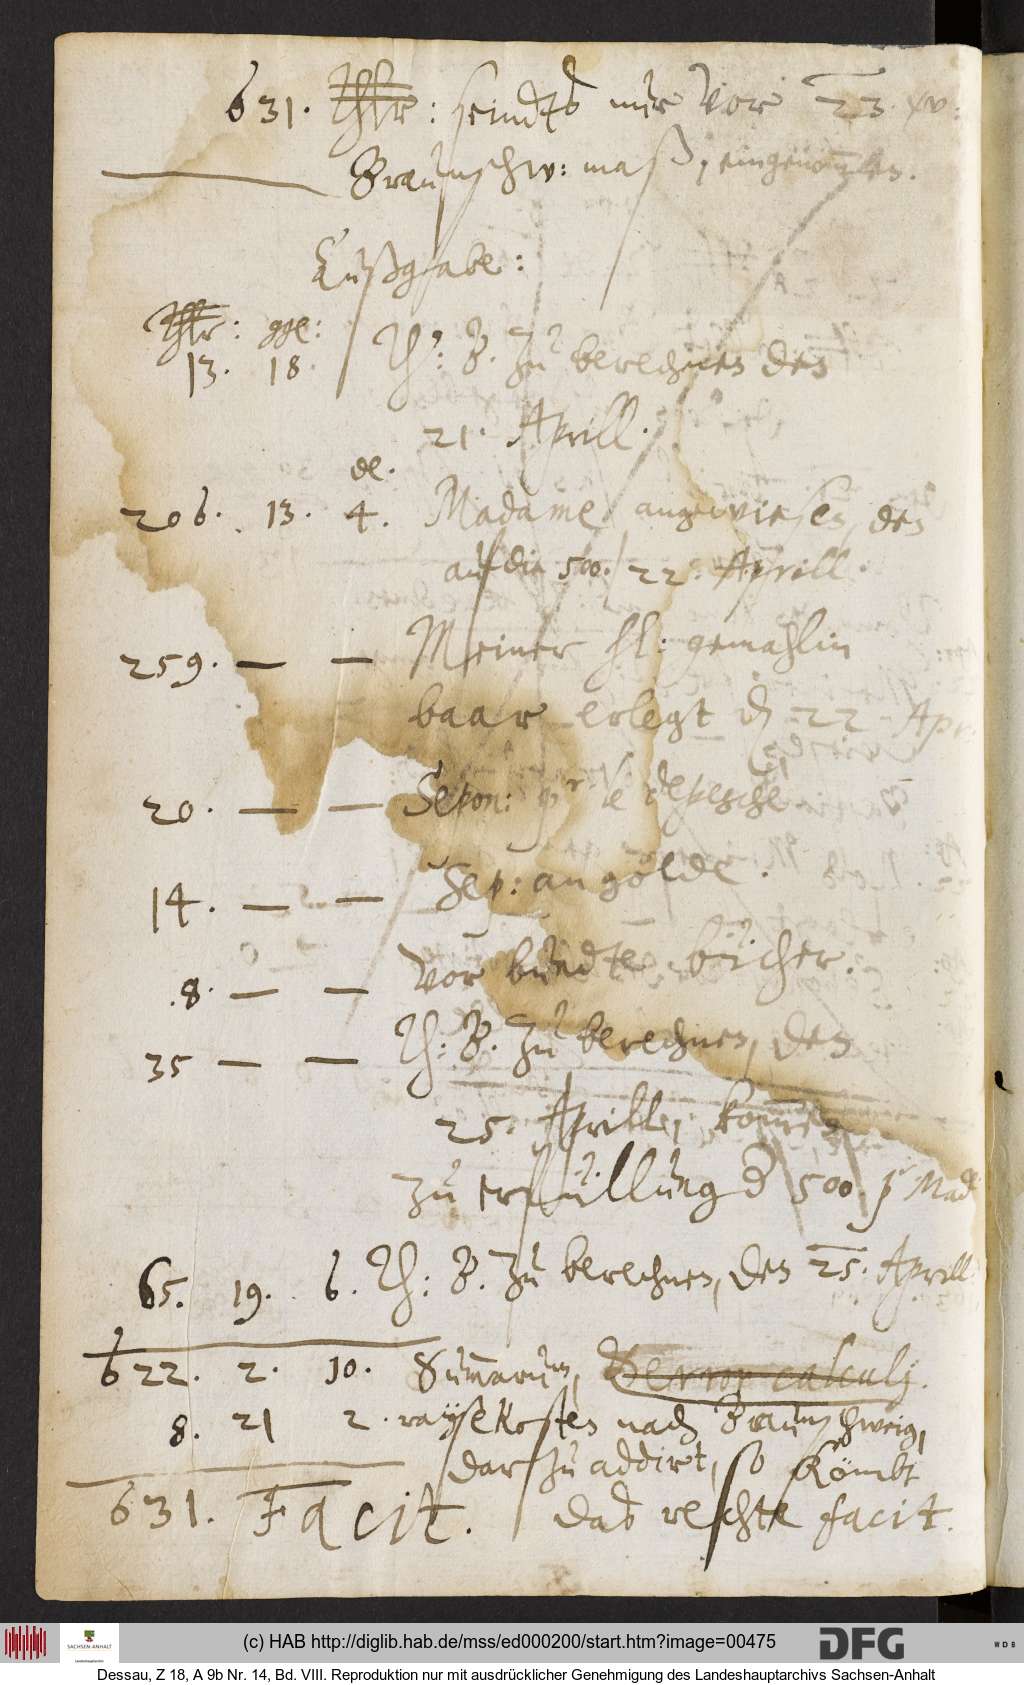 631. Thlr: seindt mir vor 23. xv:
Braunschw: maß, eingenommen.
Außgabe:
Thlr: ggl:
13. 18. Th: B. zu berechnen den
21. Aprill.
de.
206. 13. 4. Madame angewiesen, den
auf die 500. / 22. Aprill.
259. — — Meiner hl: gemahlin
baar erlegt d. 22. Apr.
20. — — Sepon: pr le depesche
14. — — Sep: an golde.
8. — — vor bundte bücher.
35 — — Th: B. zu berechnen, den
25. Aprill, kommen
zu erfüllung d 500. pr Mad
65. 19. 6. Th: B. zu berechnen, den 25. Aprill
622. 2. 10. Summarum, error calculj.
8. 21 2. raysekosten nach Braunschweig,
darzu addirt, so kömbt
631. Facit. das rechte facit.
SACHSEN-ANHALT
(c) HAB http://diglib.hab.de/mss/ed000200/start.htm?image=00475
DFG
WDB
Dessau, Z 18, A 9b Nr. 14, Bd. VIII. Reproduktion nur mit ausdrücklicher Genehmigung des Landeshauptarchivs Sachsen-Anhalt